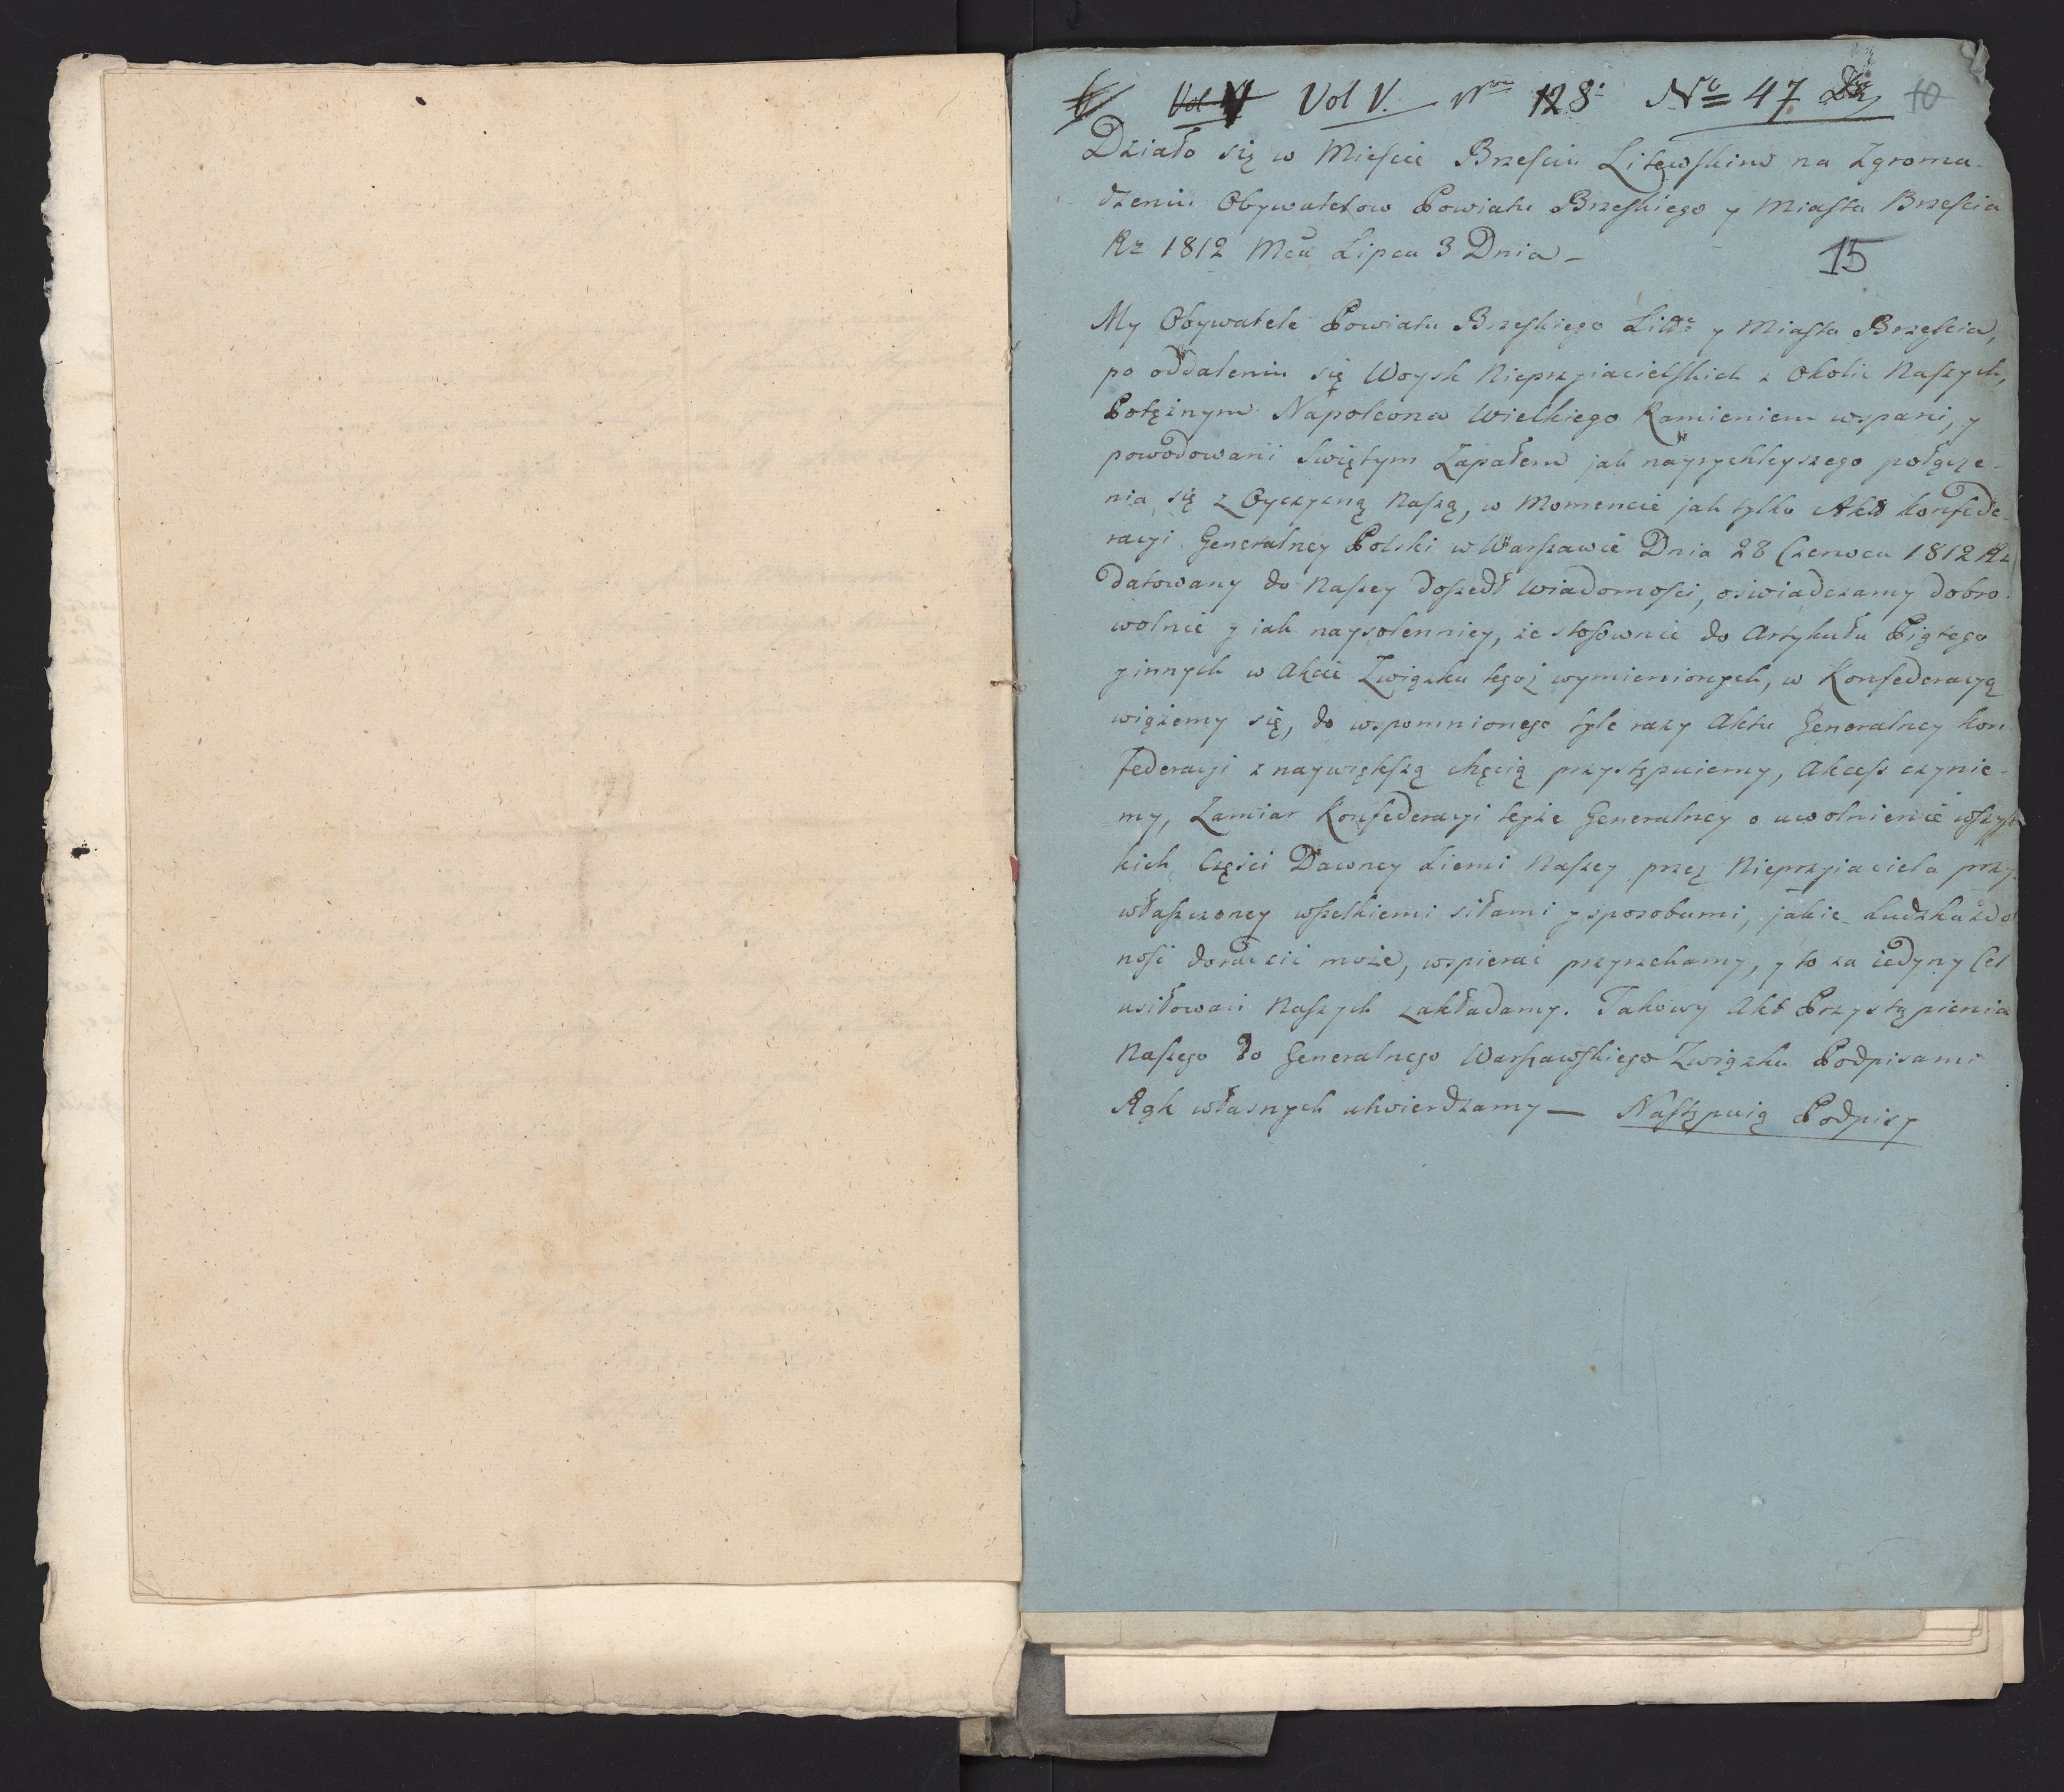 Vol V. Nro 128. No 47
Działo się w Mieście Brześciu Litewskim na Zgroma-
dzeniu Obywatelow Powiatu Brzeskiego y Miasta Brześcia
Rz 1812 Mca Lipca 3 Dnia –
15
My Obywatele Powiatu Brzeskiego Litgo y Miasta Brześcia,
po oddaleniu się Woysk Nieprzyiacielskich z Okolic Naszych,
Potężnym Napoleona Wielkiego Ramieniem wsparci, y
powodowani Swiętym Zapałem jak nayrychleyszego połącze-
nia się z Oyczyzną Naszą, w Momencie jak tylko Akt Konfede-
racyi Generalney Polski w Warszawie Dnia 28 Czerwca 1812 Rz
datowany do Naszey doszedł wiadomości, oświadczamy dobro-
wolnie y iak naysolenniey, że stosownie do Artykułu Piątego
y innych w Akcie Związku tegoż wymienionych, w Konfederacyą
wiążemy się, do wspomnionego tyle razy Aktu Generalney Kon-
federacyi z naywiększą chęcią przystępuiemy, Akcess czynie-
my, Zamiar Konfederacyi teyże Generalney o uwolnienie wszyst-
kich Części Dawney Ziemi Naszey przez Nieprzyiaciela przy-
właszczoney wszelkiemi siłami y sposobami, jakie ludzka zdol
ność doradzić może, wspierać przyrzekamy, y to za iedyny Cel
usiłowań Naszych zakładamy. Takowy Akt Przystąpienia
Naszego do Generalnego Warszawskiego Związku Podpisami
Rąk własnych utwierdzamy — Następuią Podpisy